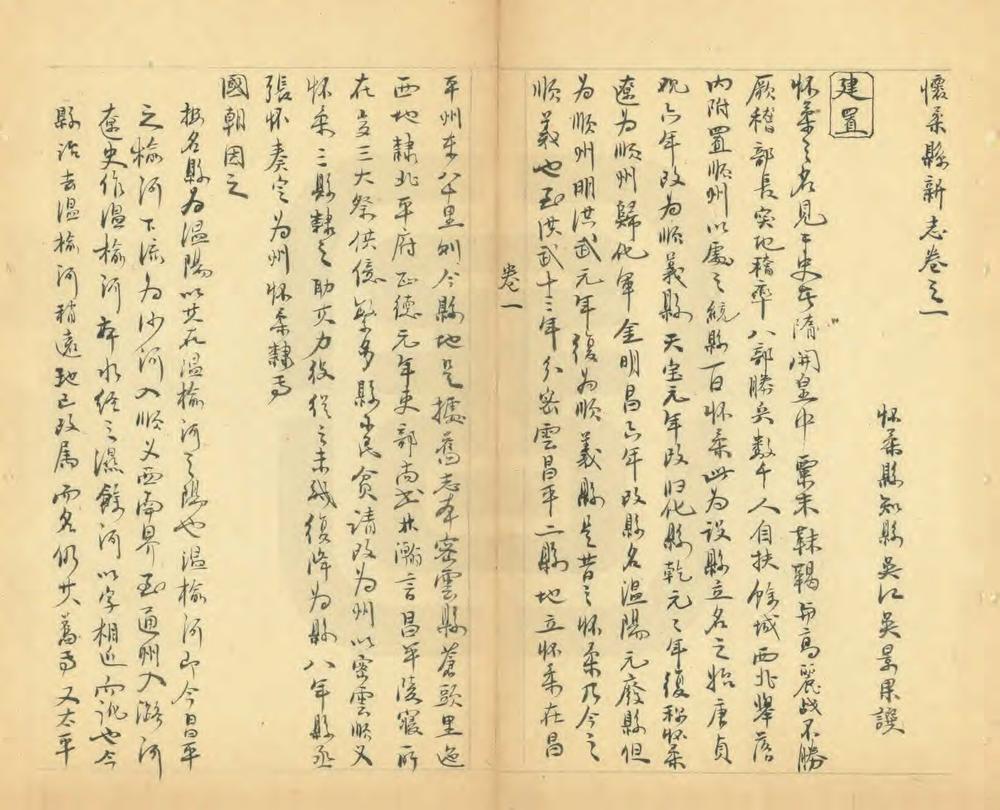 懷柔縣新志卷之一
怀柔縣知縣吳江吳景果譔
建置
怀柔之名見于史在隋開皇中粟末靺鞨与高麗战不勝
厥稽部長突地稽率八部勝兵数千人自扶餘城西北舉落
内附置順州以處之統縣一曰怀柔此为設縣立名之始唐貞
观六年改为順義縣天宝元年改归化縣乾元元年復称怀柔
遼为順州歸化軍金明昌六年改縣名温陽元廢縣但
为順州明洪武元年復为順義縣是昔之怀柔乃今之
順義也至洪武十三年分密雲昌平二縣地立怀柔在昌
卷一
平州东八十里列今縣地是據舊志本密雲縣蒼頭里迤
西地隸北平府正德元年吏部尚书林瀚言昌平陵寢所
在歲三大祭供億繁多縣小民貧请改为州以密雲順义
怀柔三縣隸之助其力役從之未幾復降为縣八年縣丞
張怀奏定为州怀柔隸焉
國朝因之
按名縣为温陽以其在温榆河之陽也温榆河即今昌平
之榆河下流为沙河入順义西南界至通州入潞河
遼史作温榆河本水经之濕餘河以字相近而讹也今
縣治去温榆河稍遠地已改属而名仍其舊焉又太平